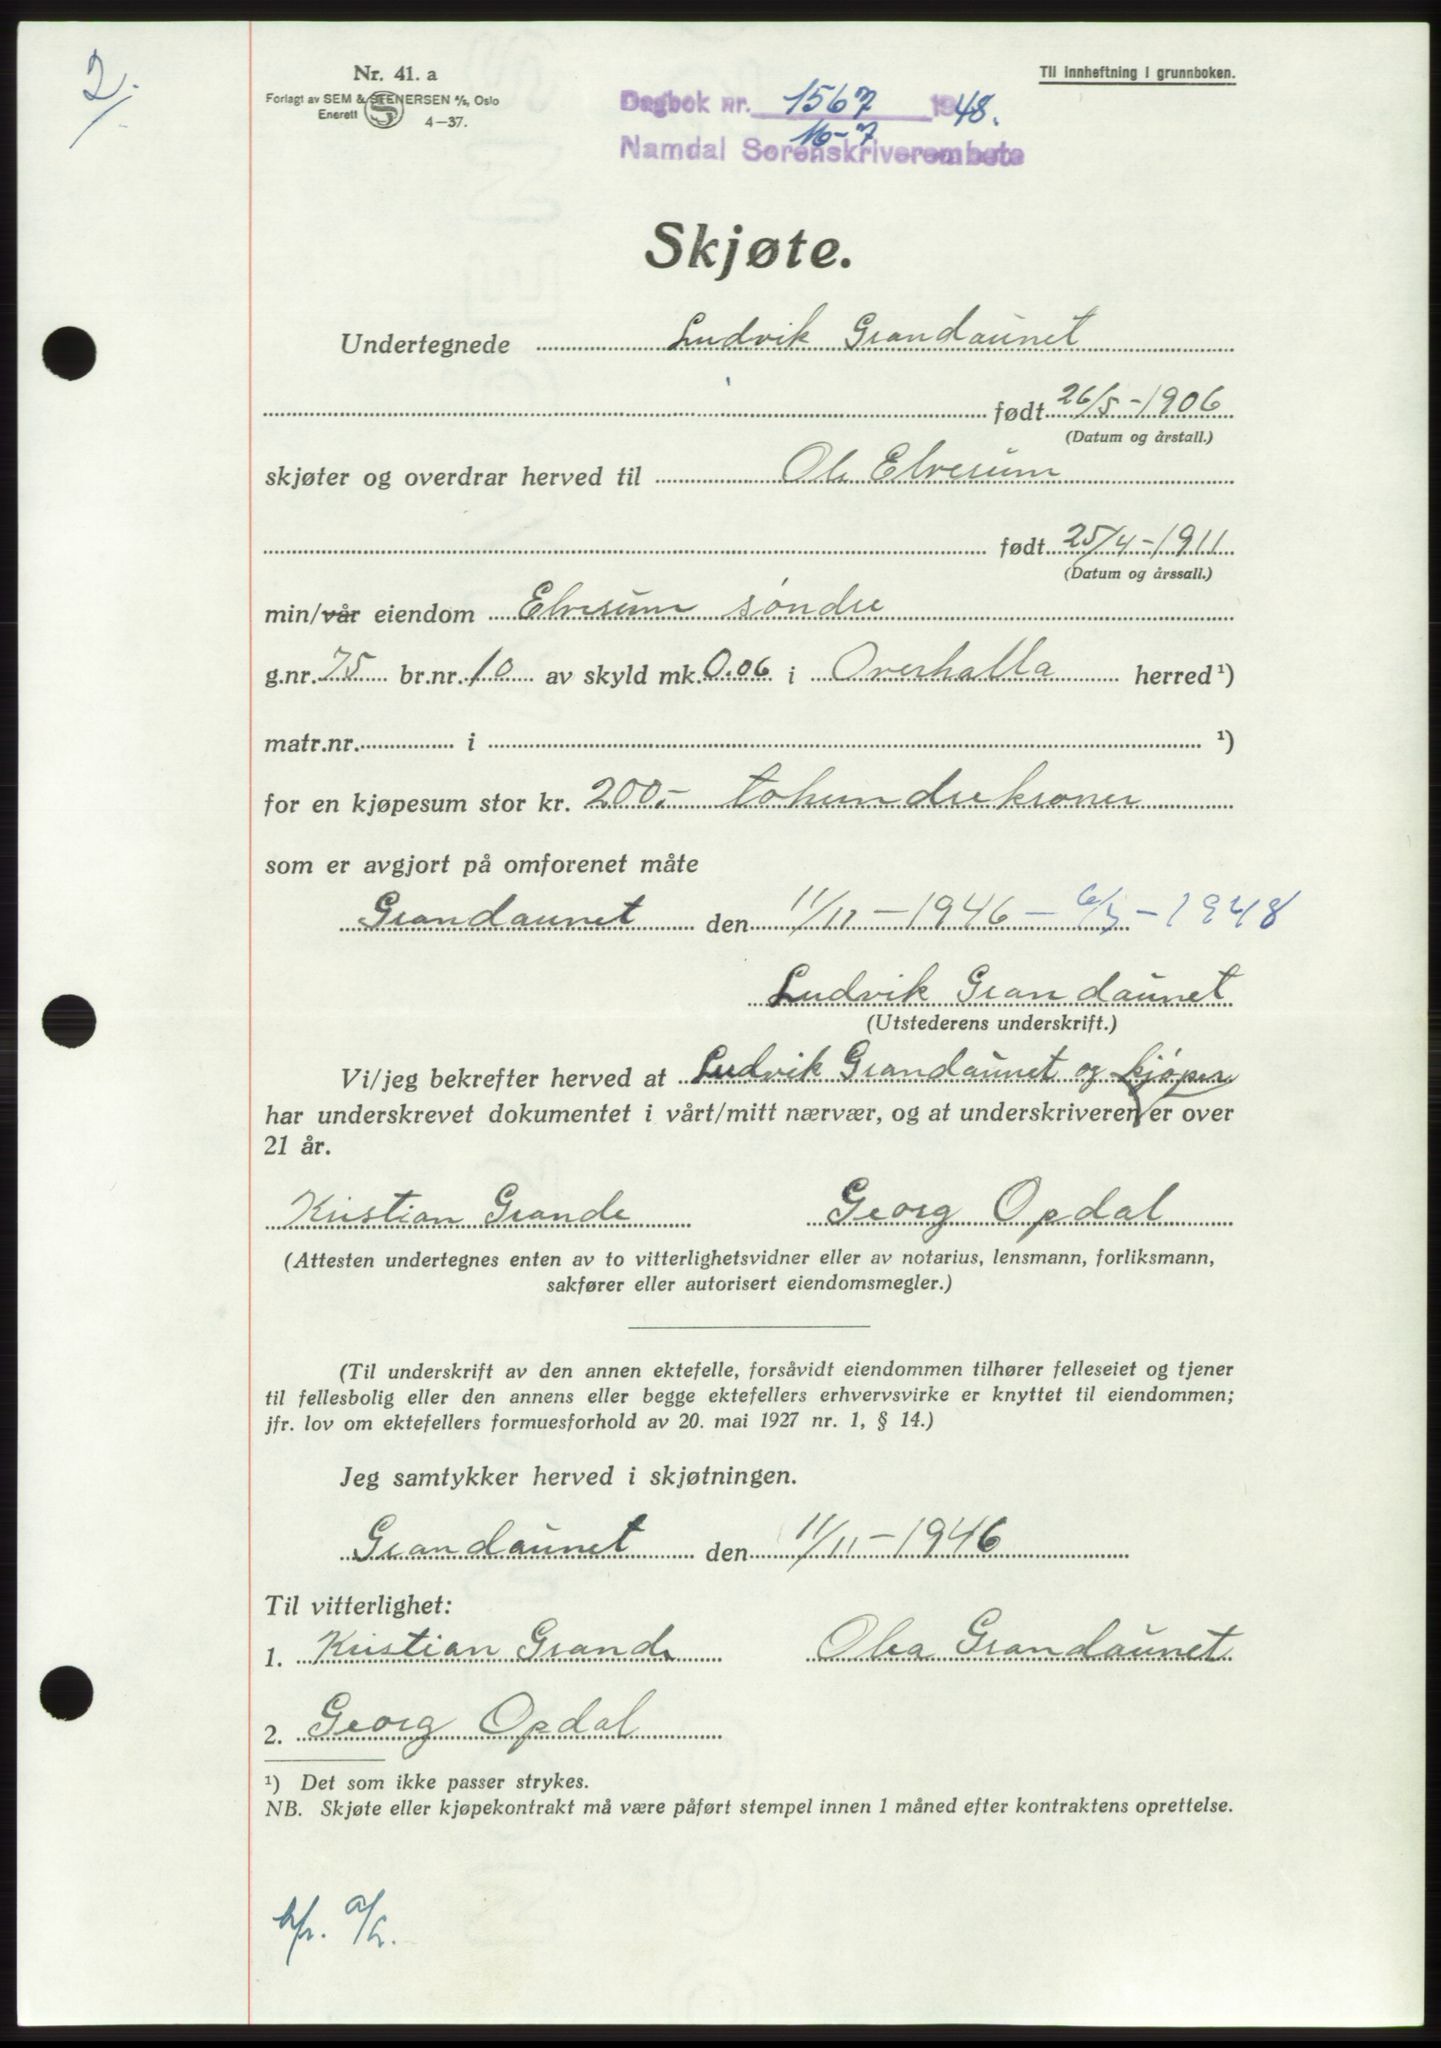 2.
Nr. 41. a
Forlagt av SEM & STENERSEN A/S, Oslo
Enerett
4—37.
Til innheftning i grunnboken.
Dagbok nr. 1567 1948.
16-7
Namdal Sorenskriverembete
Skjøte.
Undertegnede Ludvik Grandaunet
født 26/5-1906
(Datum og årstall.)
skjøter og overdrar herved til Ola Elvesum
født 25/4-1911
(Datum og årssall.)
min/vår eiendom Elvesum søndre
g.nr. 75 br.nr. 10 av skyld mk. 0.06 i Overhalla herred ¹)
matr.nr. i ¹)
for en kjøpesum stor kr. 200.- tohundrekroner
som er avgjort på omforenet måte
Grandaunet den 11/11-1946 - 1948
Ludvik Grandaunet
(Utstederens underskrift.)
Vi/jeg bekrefter herved at Ludvik Grandaunet og kjøper
har underskrevet dokumentet i vårt/mitt nærvær, og at underskriveren er over
21 år.
Kristian Grande Georg Opdal
(Attesten undertegnes enten av to vitterlighetsvidner eller av notarius, lensmann, forliksmann,
sakfører eller autorisert eiendomsmegler.)
(Til underskrift av den annen ektefelle, forsåvidt eiendommen tilhører felleseiet og tjener
til fellesbolig eller den annens eller begge ektefellers erhvervsvirke er knyttet til eiendommen;
jfr. lov om ektefellers formuesforhold av 20. mai 1927 nr. 1, § 14.)
Jeg samtykker herved i skjøtningen.
Grandaunet den 11/11-1946
Til vitterlighet:
1. Kristian Grande Olea Grandaunet
2. Georg Opdal
¹) Det som ikke passer strykes.
NB. Skjøte eller kjøpekontrakt må være påført stempel innen 1 måned efter kontraktens oprettelse.